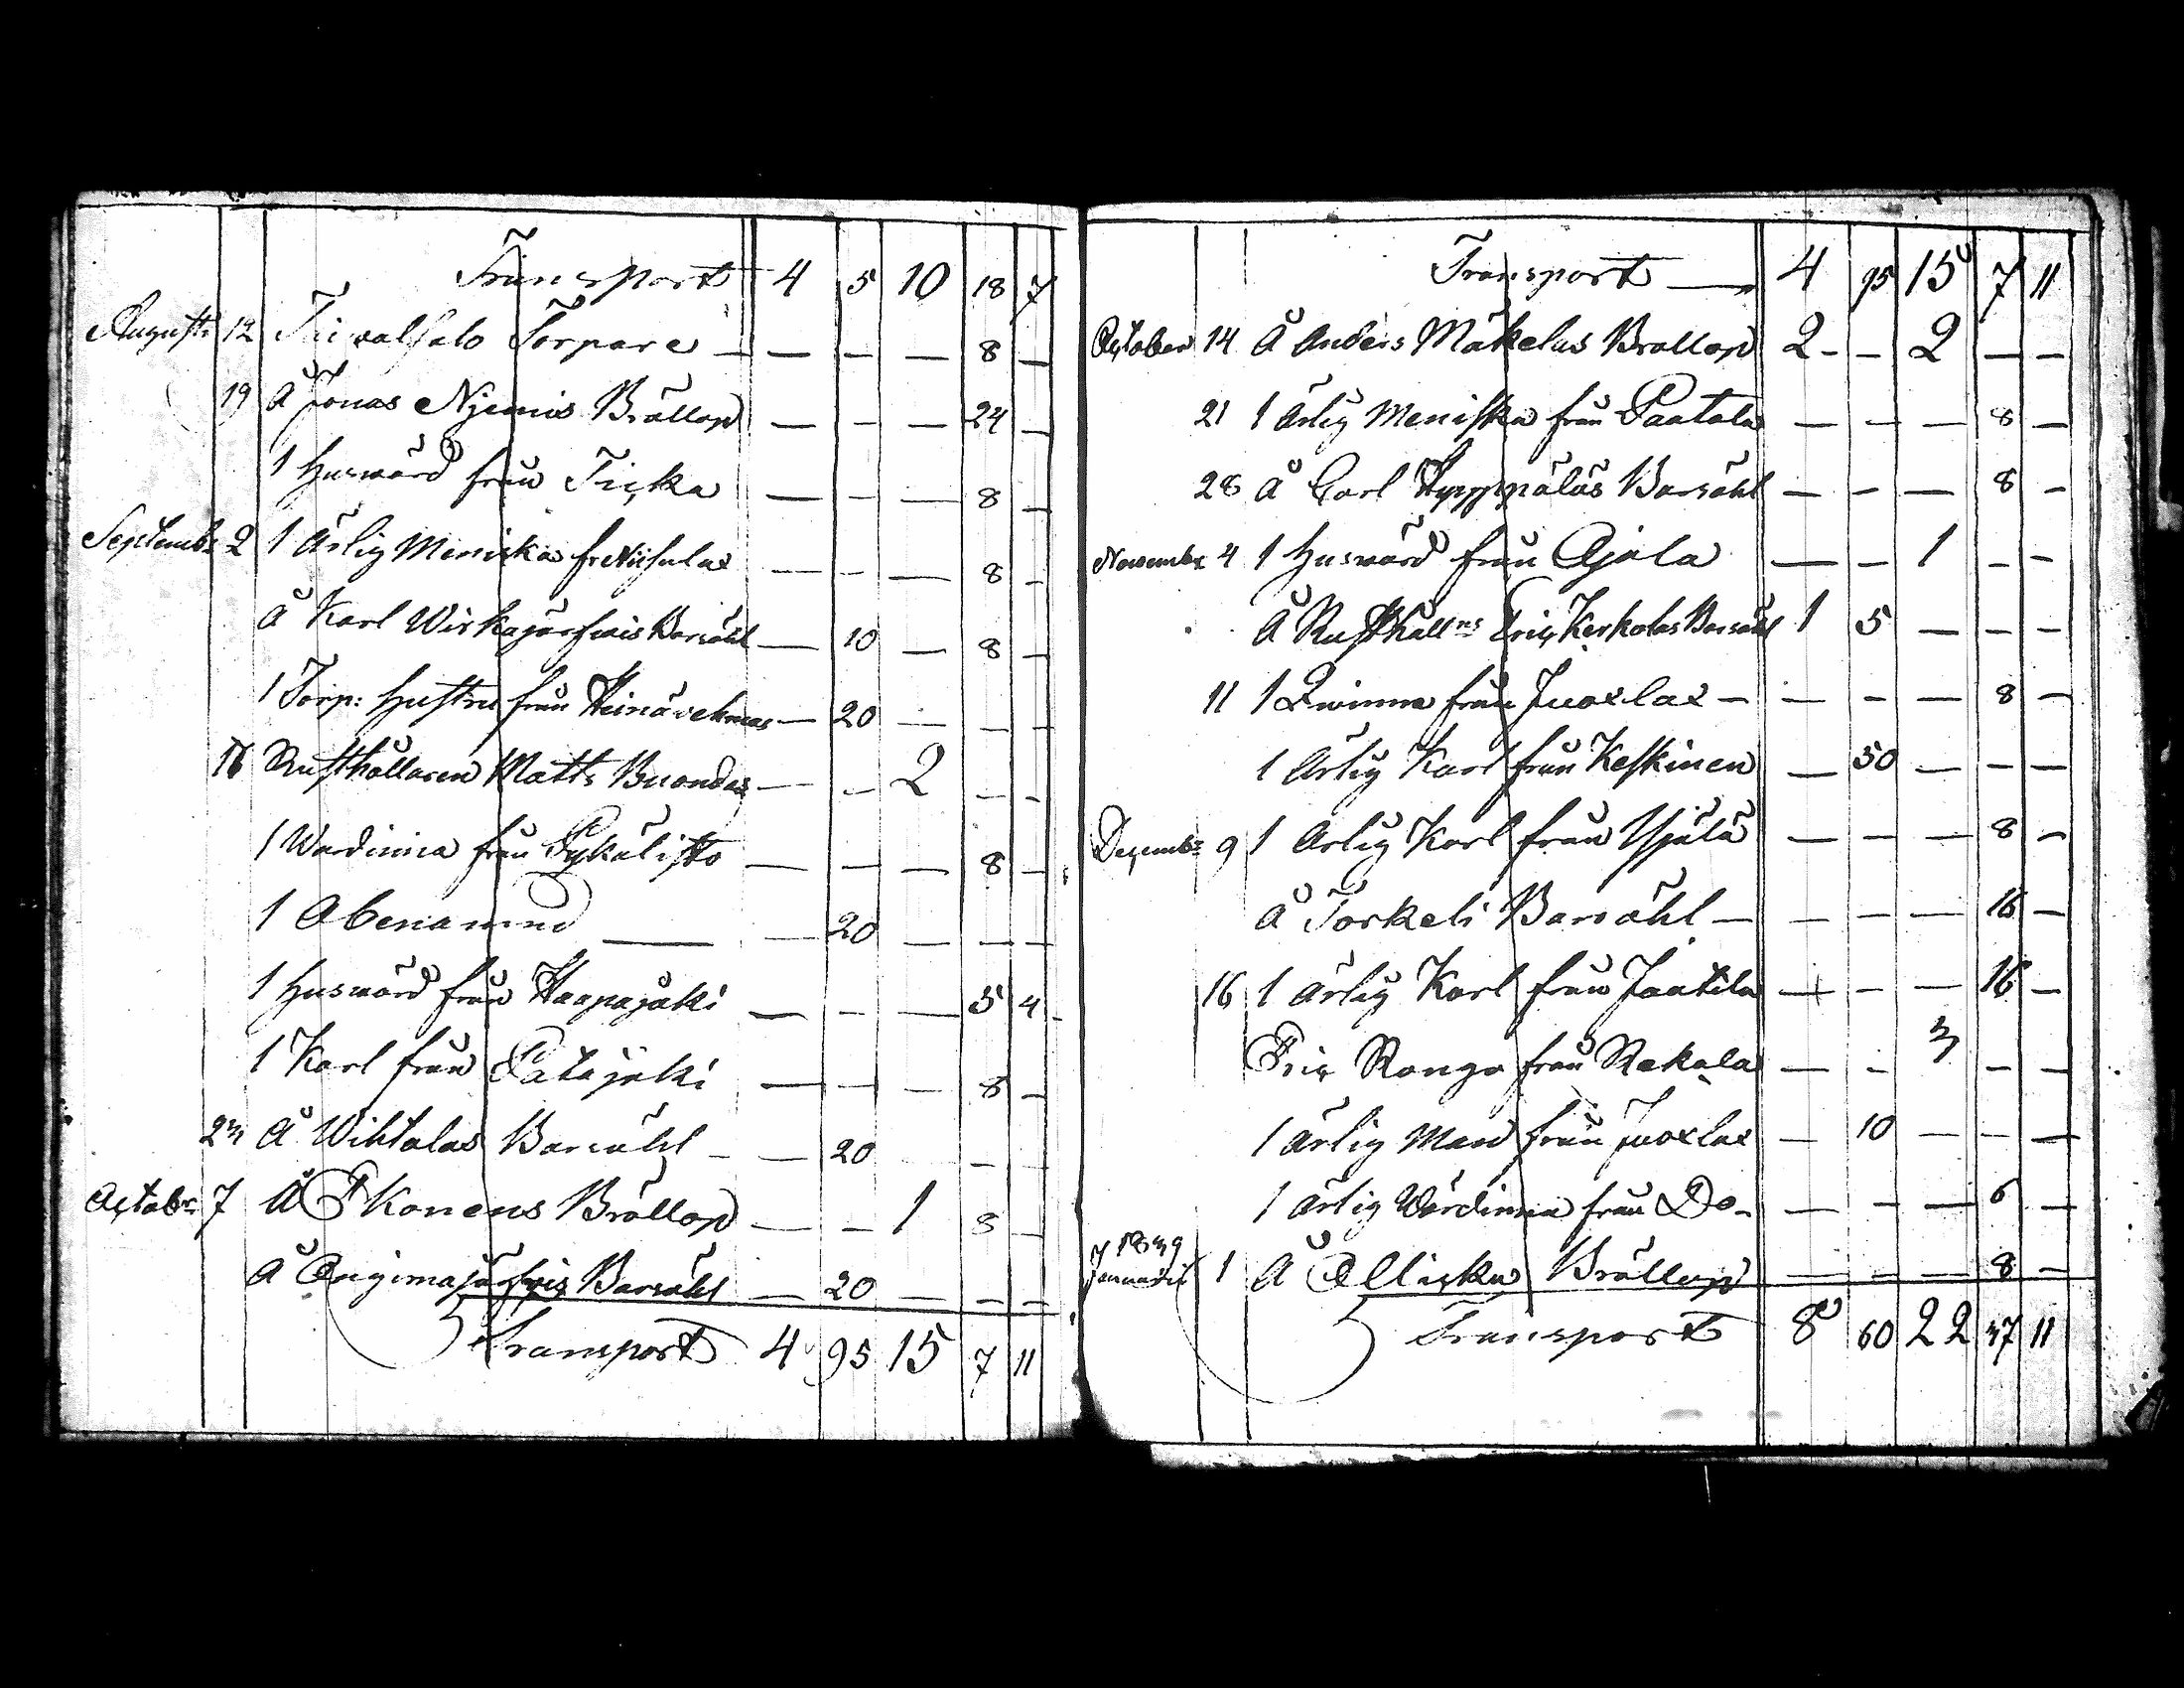 Transport 4 5 10 18 7
Augusti 12 Taivalsalo Torpare — — — 8 —
19 Å Jonas Njemis Bröllop — — — 24 —
1 Huswärd från Ticka — — — 8 —
Septembr 2 1 Ärlig Meniska fr — — — 8 —
Å Karl Wirkajärfwis Barsöhl — 10 — 8 —
1 Torp: Hustru från Heinä — 20 — — —
16 Rusthållaren Matts — — 2 — —
1 Wärdinna från Pykälistö — — — 8 —
1 — 20 — — —
1 Huswärd från Haapajoki — — — 5 4
1 Karl från Patajoki — — — 8 —
23 Å Wihtalas Barsöhl — 20 — —
Octobr 7 Å Ikonens Bröllop — — 1 8 —
Å Barsöhl — 20 — — —
Transport 4 95 15 7 11
Transport — 4 95 15 7 11
October 14 Å Anders Mäkeläs Bröllop 2 — 2 — —
21 1 Ärlig Meniska från Paatala — — — 8 —
28 Å Carl Hyppöläs Barsöhl — — — 8 —
Novembr 4 1 Huswärd från Ajala — — 1 — —
Å Rusthålln Eric Kerkolas Barsöhl 1 5 — — —
11 1 Qwinna från Juoxlax — — — — 8 —
1 Ärlig Karl från Keskinen — 50 — — —
Decembr 9 1 Ärlig Karl från — — — 8 —
Å Torkeli Barsöhl — — — — 16 —
16 1 Ärlig Karl från Jaatila — — — 16 —
Eric Rongo från Rekola — — 3 — —
1 Ärlig Man från Juoxlax — 10 — — —
1 Ärlig Wärdinna från Do — — — 6 —
1839
Januarii 1 Å Bröllop — — — 8 —
Transport 8 60 22 37 11